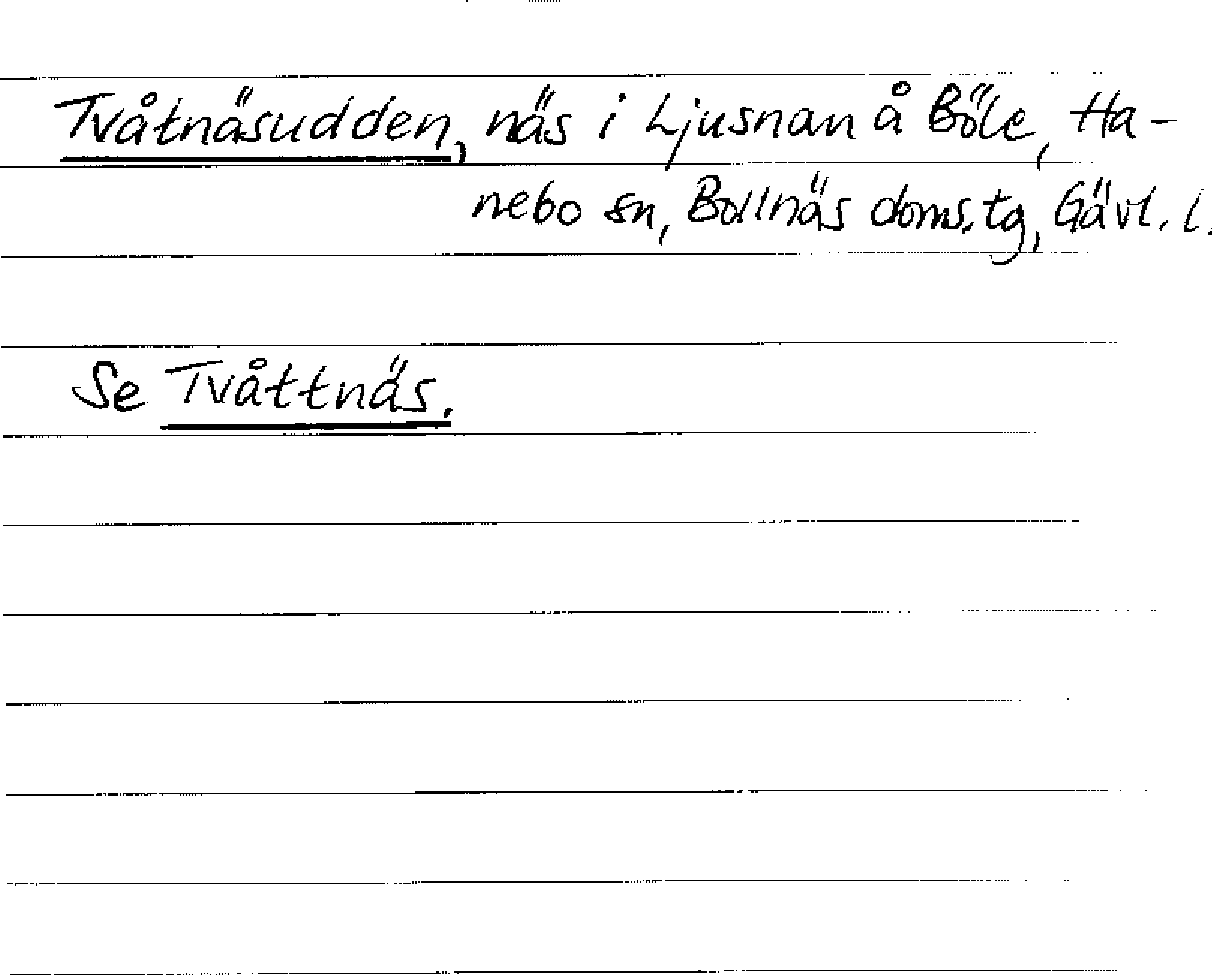 Tvåtnäsudden, näs i Ljusnan å Böle, Ha-
nebo sn, Bollnäs doms.tg, Gävl. l.
Se Tvåttnäs.